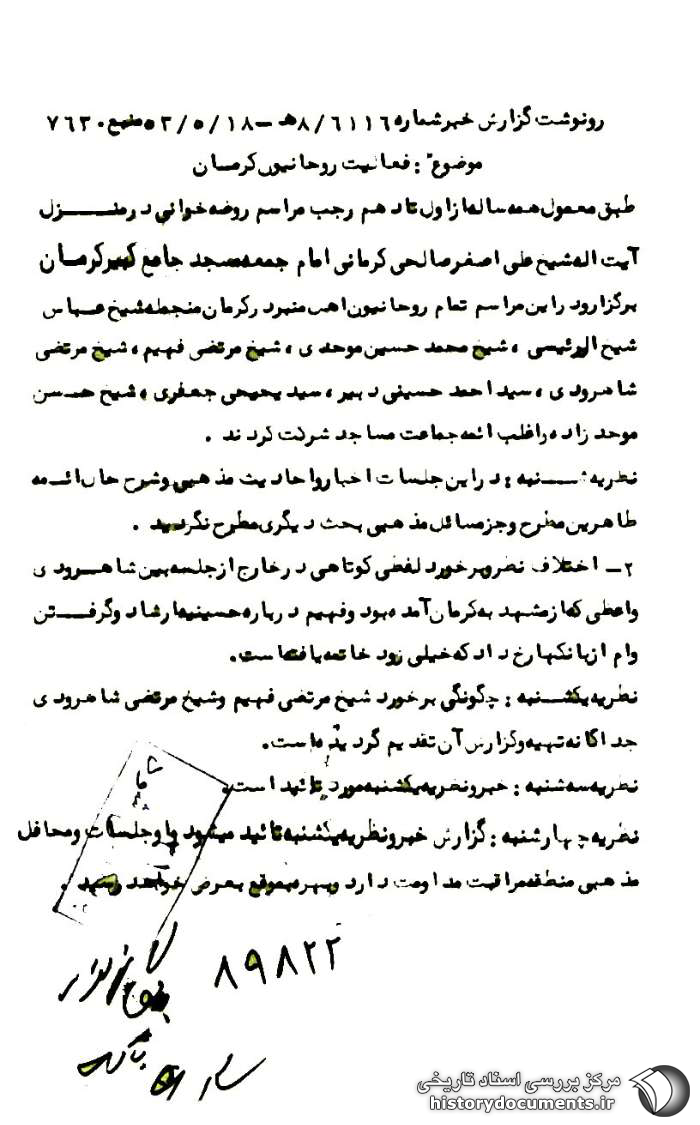 رونوشت گزارش خبر شماره ۸/۶۱۱۶ هـ – ۵۳/۵/۱۸ منبع ۷۶۳۰
موضوع : فعالیت روحانیون کرمان
طبق معمول همه ساله از اول تا دهم رجب مراسم روضه خوانی در منزل
آیت اله شیخ علی اصغر صالحی کرمانی امام جمعه مسجد جامع کبیر کرمان
برگزار و در این مراسم تمام روحانیون اهل منبر در کرمان منجمله شیخ عباس
شیخ الرئیسی ، شیخ محمد حسین موحدی ، شیخ مرتضی فهیم ، شیخ مرتضی
شاهرودی ، سید احمد حسینی دبیر ، سید یحیی جعفری ، شیخ حسن
موحد زاده و اغلب ائمه جماعت مساجد شرکت کردند .
نظریه شنبه : در این جلسات اخبار و احادیث مذهبی و شرح حال ائمه
طاهرین مطرح و جز مسائل مذهبی بحث دیگری مطرح نگردید .
۲ – اختلاف نظر و برخورد لفظی کوتاهی در خارج از جلسه بین شاهرودی
واعظی که از مشهد به کرمان آمده بود و فهیم درباره حسینیه ارشاد و گرفتن
وام از بانکها رخ داد که خیلی زود خاتمه یافته است.
نظریه یکشنبه : چگونگی برخورد شیخ مرتضی فهیم و شیخ مرتضی شاهرودی
جداگانه تهیه و گزارش آن تقدیم گردیده است.
نظریه سه شنبه : خبر و نظریه یکشنبه مورد تائید است.
نظریه چهارشنبه : گزارش خبر و نظریه یکشنبه تائید میشود و جلسات و محافل
مذهبی منطقه مراقبت مداومت دارد و بهره بموقع بعرض خواهد رسید .
۸۹۸۲۲
مرکز بررسی اسناد تاریخی
historydocuments.ir